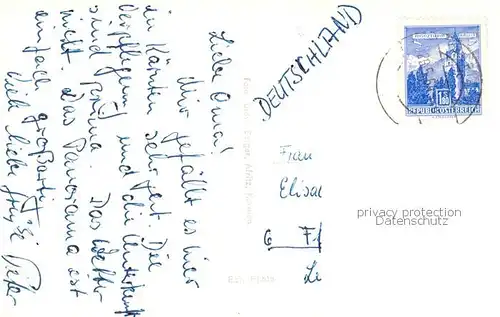 Liebe Oma!
Mir gefällt es hier
in Kärnten sehr gut. Die
Verpflegung und die Unterkunft
sind prima. Das Wetter
nicht. Das Panorama ist
einfach großartig.
Viele liebe Grüße Peter
DEUTSCHLAND
Frau
Elisa
6 F
Le
REPUBLIK ÖSTERREICH
privacy protection
Datenschutz